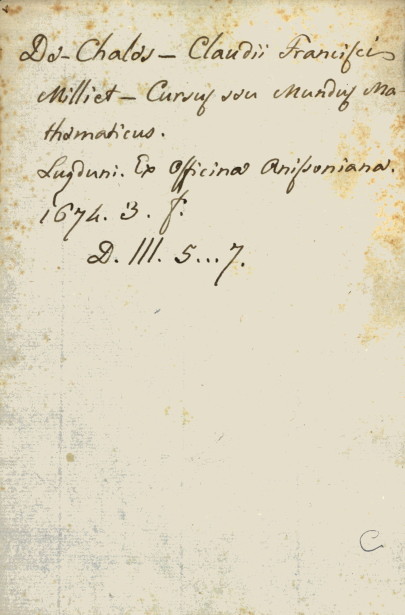 De-Chales – Claudii Francisci
Milliet – Cursus seu Mundus Ma-
thematicus.
Lugduni. Ex Officina Anissoniana.
1674. 3. f.
D. III. 5...7.
C